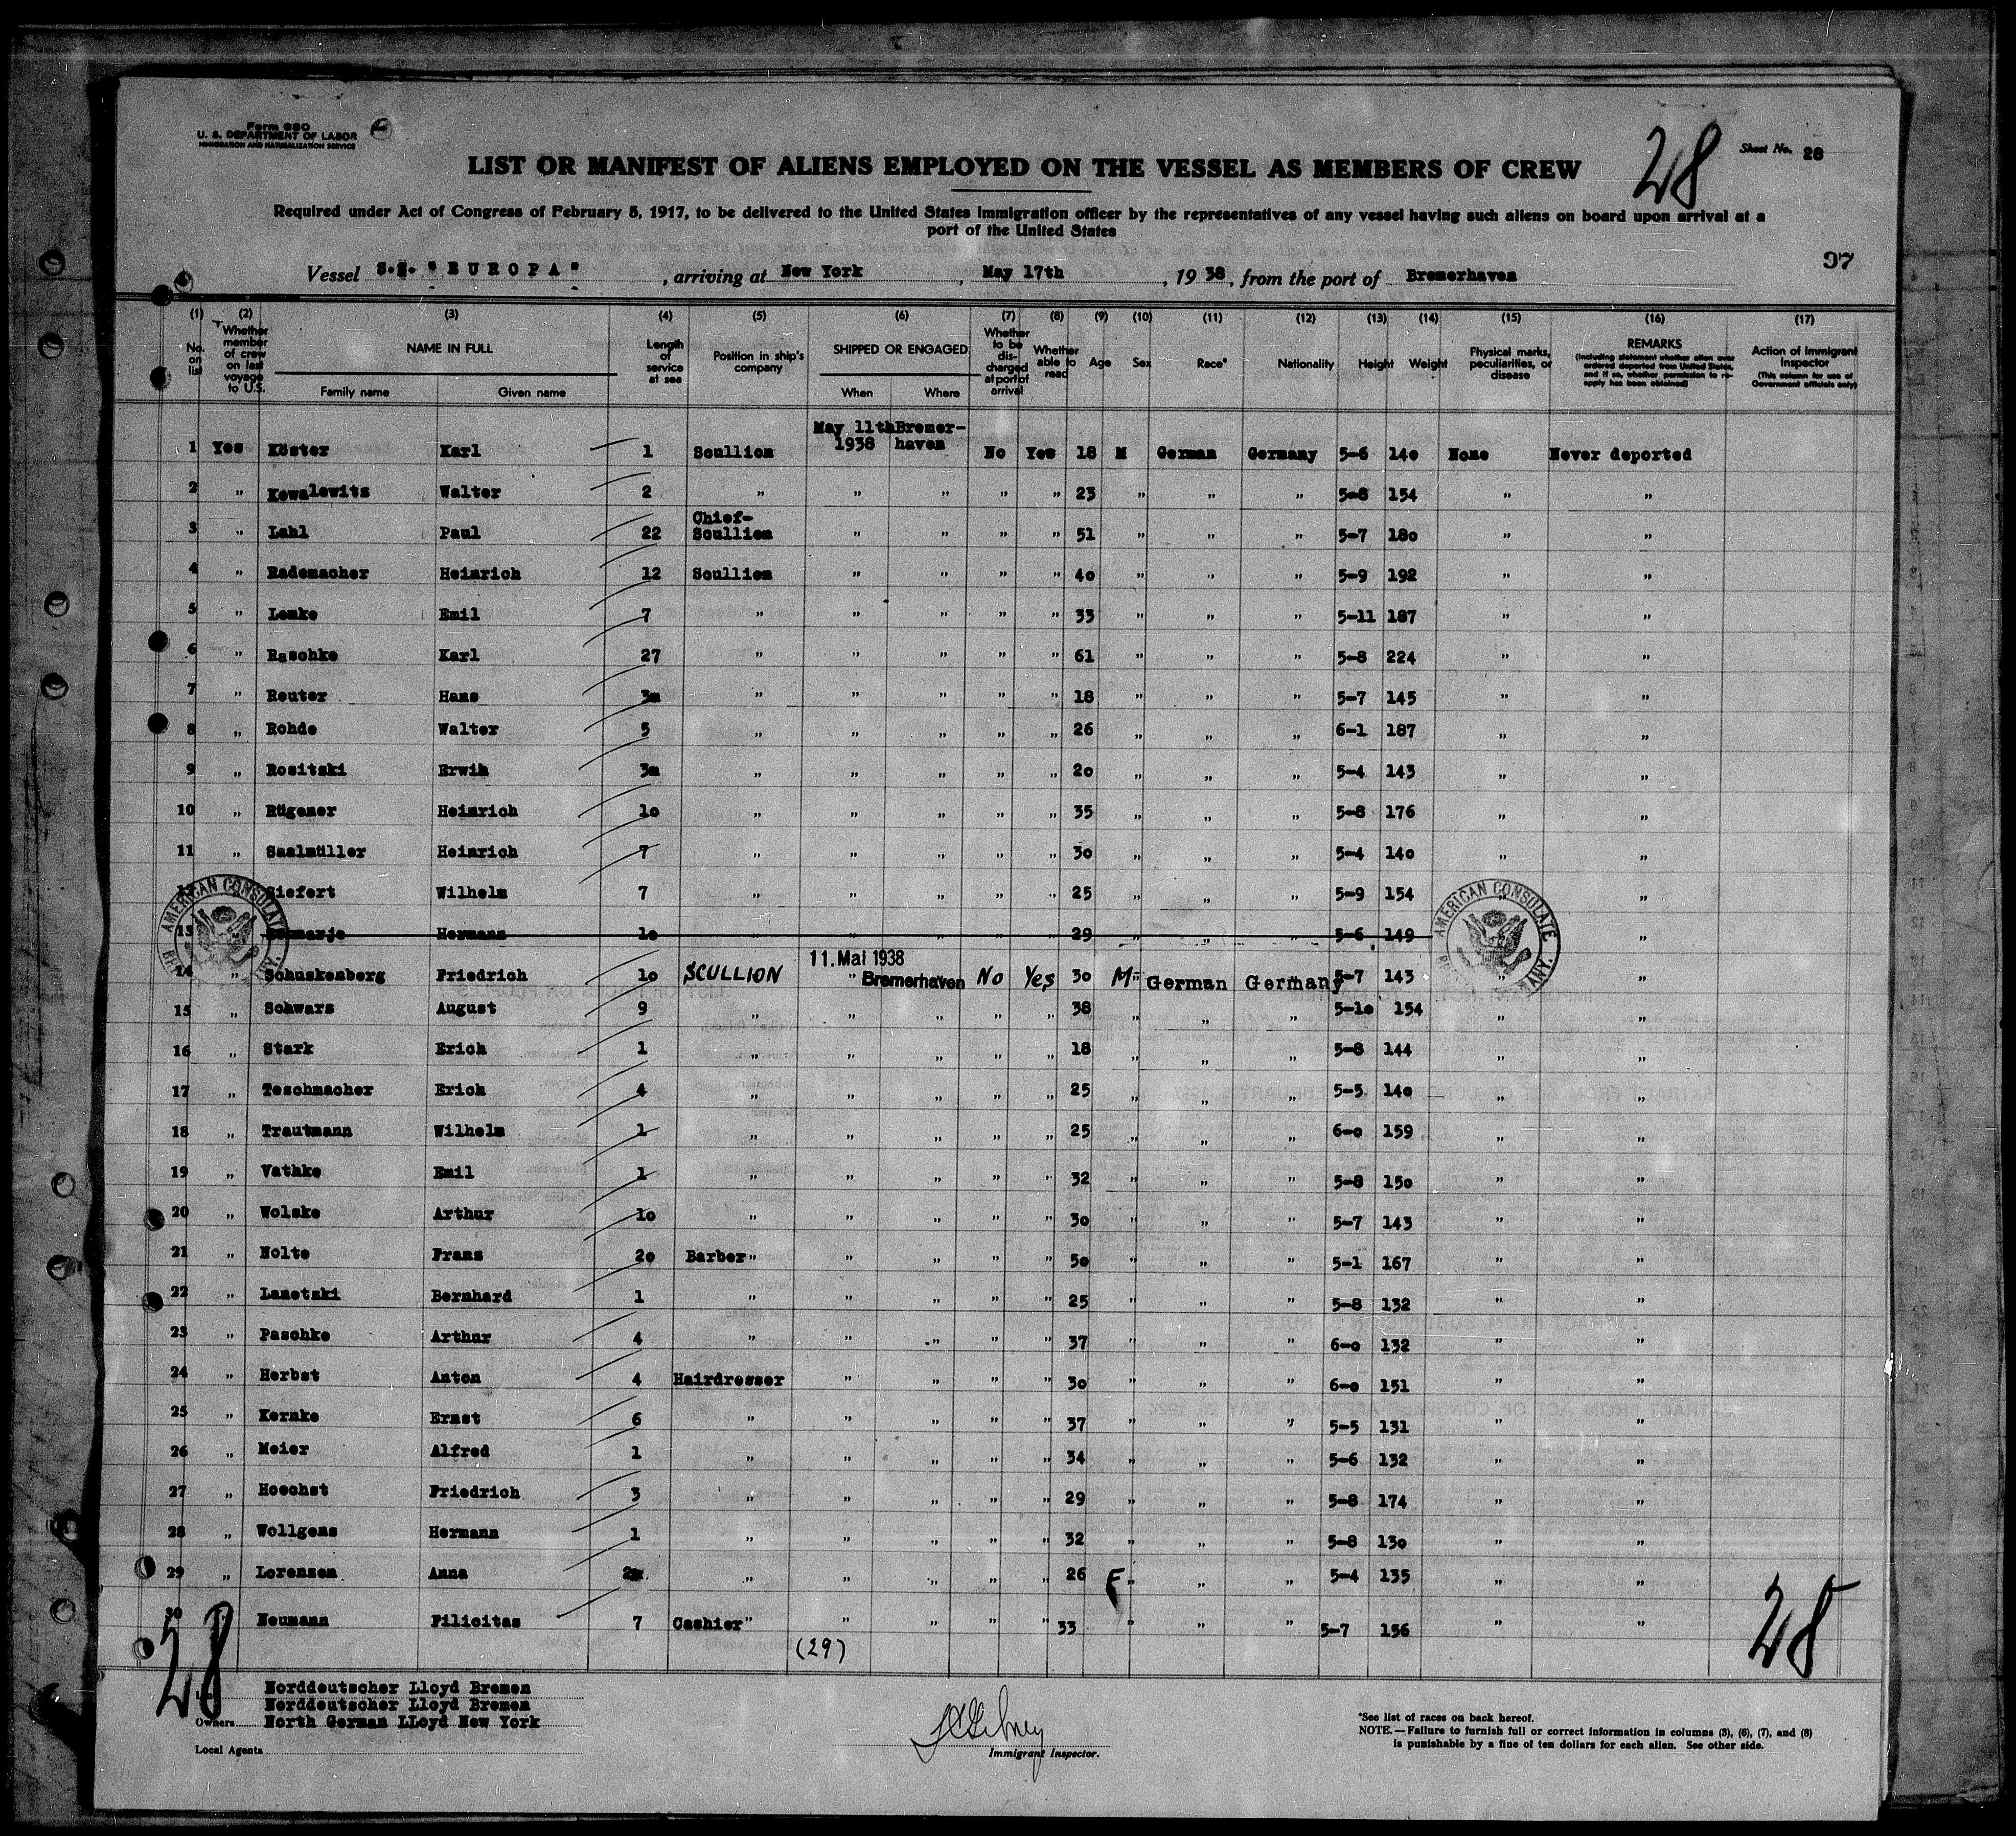 Form 680
U. S. DEPARTMENT OF LABOR
IMMIGRATION AND NATURALIZATION SERVICE
28
Sheet No. 28
LIST OR MANIFEST OF ALIENS EMPLOYED ON THE VESSEL AS MEMBERS OF CREW
Required under Act of Congress of February 5, 1917, to be delivered to the United States Immigration officer by the representatives of any vessel having such aliens on board upon arrival at a
port of the United States
97
Vessel S.S. "EUROPA", arriving at New York, May 17th, 1938, from the port of Bremerhaven
(1) (2) (3) (4) (5) (6) (7) (8) (9) (10) (11) (12) (13) (14) (15) (16) (17)
No. on list
Whether member of crew on last voyage to U.S.
NAME IN FULL
Family name Given name
Length of service at sea
Position in ship's company
SHIPPED OR ENGAGED
When Where
Whether to be discharged at port of arrival
Whether able to read
Age Sex Race* Nationality Height Weight
Physical marks, peculiarities, or disease
REMARKS
(Including statement whether alien ever ordered deported from United States, and if so, whether permission to reapply has been obtained)
Action of Immigrant Inspector
(This column for use of Government officials only)
1 Yes Köster Karl 1 Scullion May 11th 1938 Bremer-haven No Yes 18 M German Germany 5-6 140 None Never deported
2 " Kowalewits Walter 2 " " " " " 23 " " " 5-8 154 " "
3 " Lahl Paul 22 Chief-Scullion " " " " 51 " " " 5-7 180 " "
4 " Rademacher Heinrich 12 Scullion " " " " 40 " " " 5-9 192 " "
5 " Lemke Emil 7 " " " " " 33 " " " 5-11 187 " "
6 " Raschke Karl 27 " " " " " 61 " " " 5-8 224 " "
7 " Reuter Hans 3m " " " " " 18 " " " 5-7 145 " "
8 " Rohde Walter 5 " " " " " 26 " " " 6-1 187 " "
9 " Rositzki Erwin 3m " " " " " 20 " " " 5-4 143 " "
10 " Rügener Heinrich 10 " " " " " 35 " " " 5-8 176 " "
11 " Saalmüller Heinrich 7 " " " " " 30 " " " 5-4 140 " "
12 Siefert Wilhelm 7 " " " " " 25 " " " 5-9 154 " "
13 Hermann 10 " " " " " 29 " " " 5-6 149 "
14 " Schuskenberg Friedrich 10 SCULLION 11. Mai 1938 " Bremerhaven No Yes 30 M " German Germany 5-7 143 " "
15 " Schwarz August 9 " " " " " 38 " " " 5-10 154 " "
16 " Stark Erich 1 " " " " " 18 " " " 5-8 144 " "
17 " Teschmacher Erich 4 " " " " " 25 " " " 5-5 140 " "
18 " Trautmann Wilhelm 1 " " " " " 25 " " " 6-0 159 " "
19 " Vathke Emil 1 " " " " " 32 " " " 5-8 150 " "
20 " Wolske Arthur 10 " " " " " 30 " " " 5-7 143 " "
21 " Nolte Franz 20 Barber " " " " " 50 " " " 5-1 167 " "
22 " Lanetzki Bernhard 1 " " " " " 25 " " " 5-8 132 " "
23 " Paschke Arthur 4 " " " " " 37 " " " 6-0 132 " "
24 " Herbst Anton 4 Hairdresser " " " " 30 " " " 6-0 151 " "
25 " Kernke Ernst 6 " " " " " 37 " " " 5-5 131 " "
26 " Meier Alfred 1 " " " " " 34 " " " 5-6 132 " "
27 " Hoechst Friedrich 3 " " " " " 29 " " " 5-8 174 " "
28 " Wollgens Hermann 1 " " " " " 32 " " " 5-8 130 " "
29 " Lorenzen Anna " " " " " 26 F " " " 5-4 135 " "
30 " Neumann Filicitas 7 Cashier " " " " " 33 " " " 5-7 156 " "
(29)
AMERICAN CONSULATE
AMERICAN CONSULATE
28
28
Norddeutscher Lloyd Bremen
Norddeutscher Lloyd Bremen
Owners North German LLoyd New York
Local Agents
Immigrant Inspector.
*See list of races on back hereof.
NOTE.—Failure to furnish full or correct information in columns (3), (6), (7), and (8)
is punishable by a fine of ten dollars for each alien. See other side.